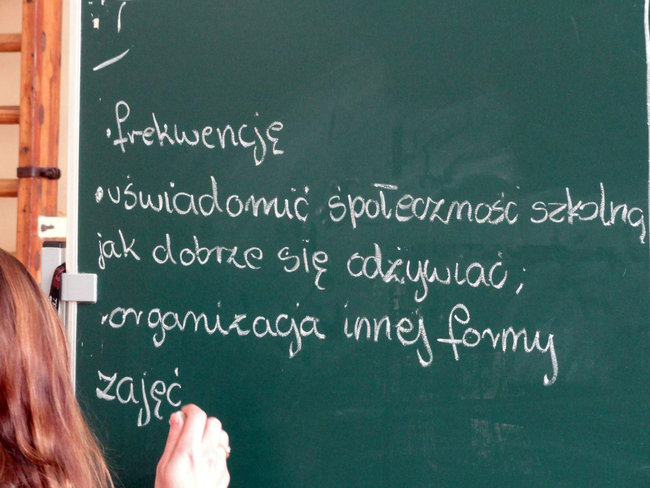 • frekwencję
• uświadomić społeczność szkolną
jak dobrze się odżywiać;
• organizacja innej formy
zajęć